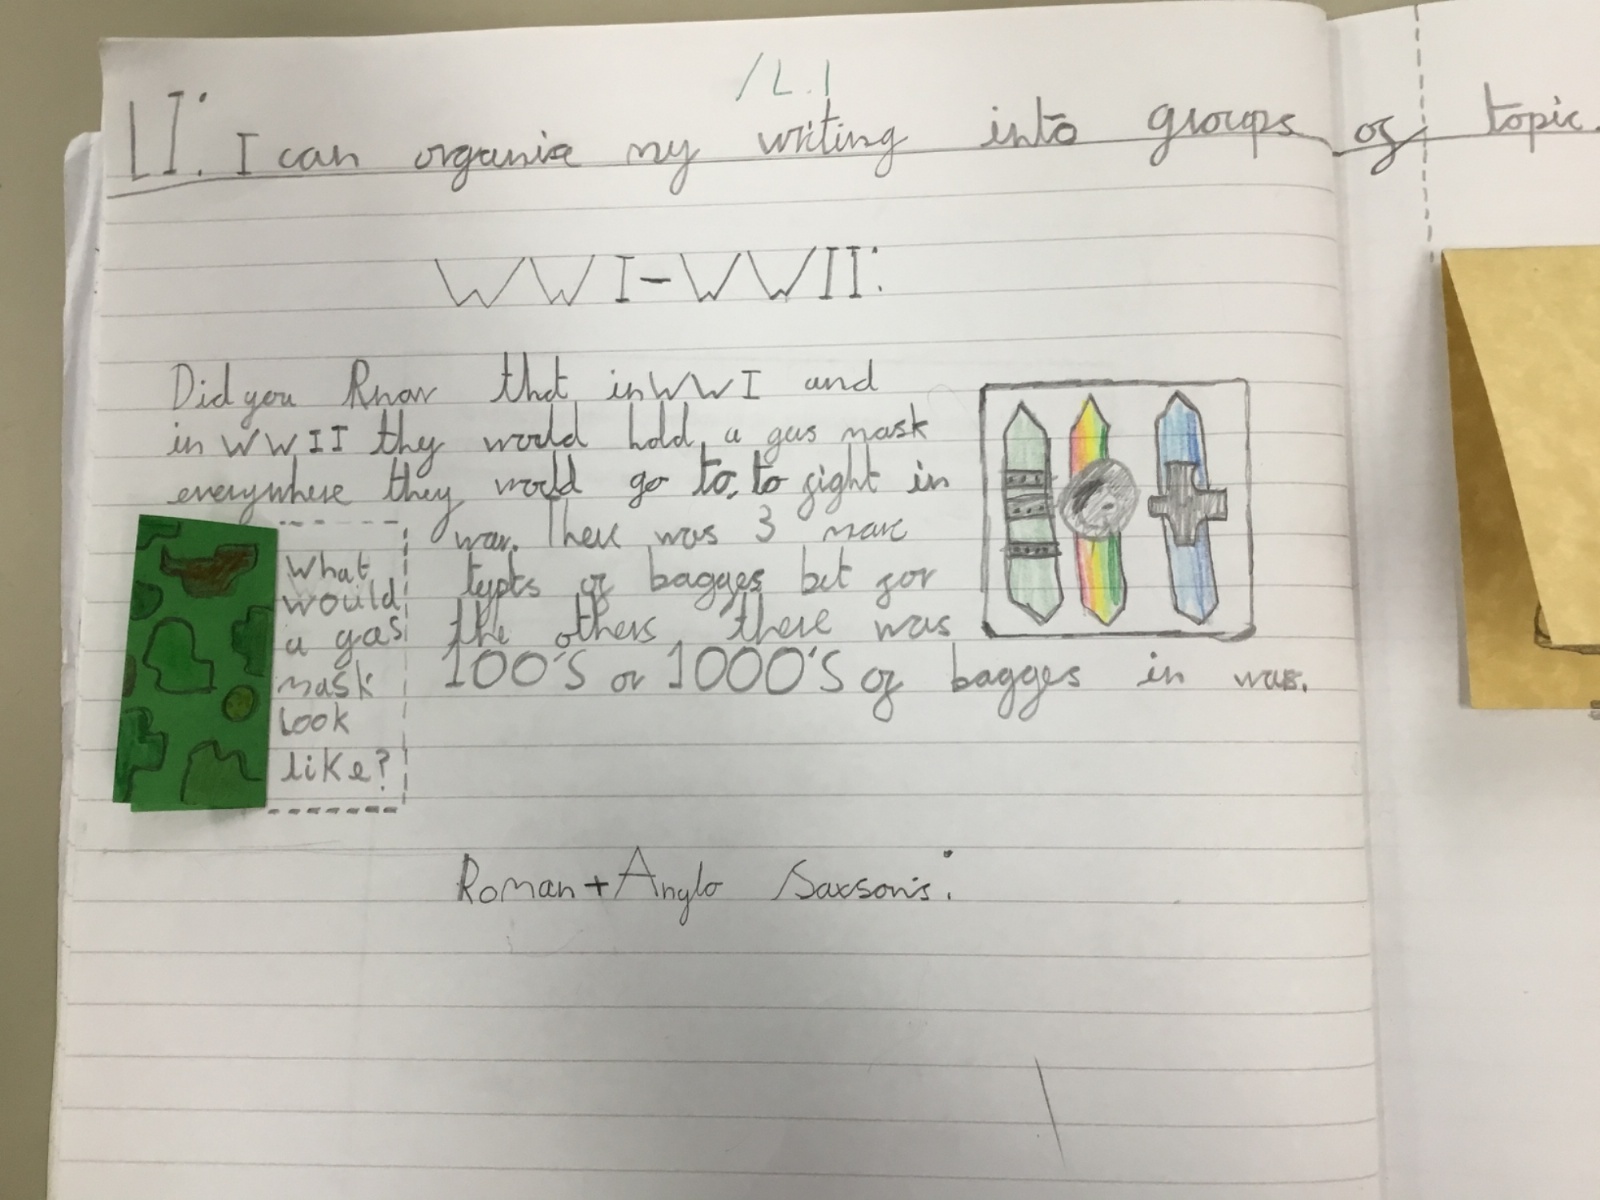 /L.I
LI: I can organise my writing into groups of topic.
WWI-WWII:
Did you know that in WWI and
in WWII thy would hold, a gas mask
everywhere they would go to, to fight in
war. There was 3 marc
typts of bagges but for
the others, there was
100's or 1000's of bagges in war.
What
would
a gas
mask
look
like?
Roman + Anglo Saxson's: